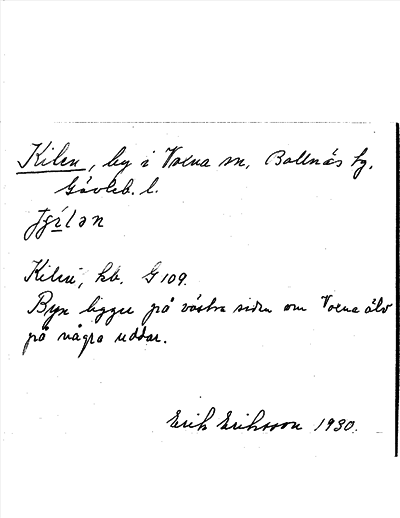 Kilen, by i Voxna sn, Bollnäs tg,
Gävleb. l.
Kilen, kb. G 109.
Byn ligger på västra sidan om Voxna älv
på några uddar.
Erik Eriksson 1930.